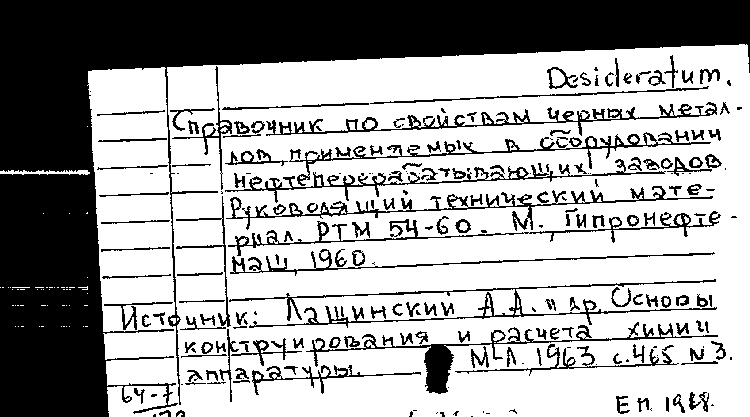 Desideratum.
Справочник по свойствам черных метал-
лов, применяемых в оборудовании
нефтеперерабатывающих заводов
Руководящий технический мате-
риал. РТМ 54-60. М., Гипронефте-
маш, 1960.
Источник: Лащинский А.А. и др. Основы
конструирования и расчета химич
аппаратуры. М-Л. 1963 с.465 N3.
64-7
ЕП 1968.